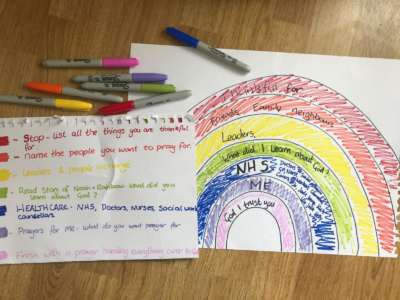 - Stop - list all the things you are thankful
for
- name the people you want to pray for.
- Leaders & people in charge
- Read Story of Noah + Rainbow what did you
learn about God?
HEALTHCARE - NHS, Doctors, Nurses, Social work
counsellors
- Prayers for Me - what do you want prayer for
Finish with a prayer handing everything over to
Thankful for
Friends, Family, Neighbours
Leaders,
What did I learn about God?
NHS
ME
God I trust you